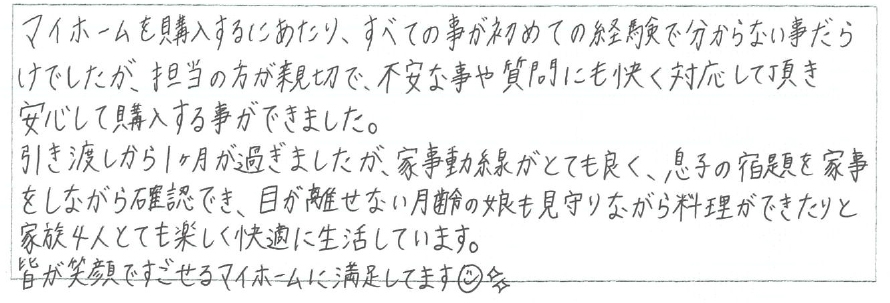 マイホームを購入するにあたり、すべての事が初めての経験で分からない事だら
けでしたが、担当の方が親切で、不安な事や質問にも快く対応して頂き
安心して購入する事ができました。
引き渡しから1ヶ月が過ぎましたが、家事動線がとても良く、息子の宿題を家事
をしながら確認でき、目が離せない月齢の娘も見守りながら料理ができたりと
家族4人とても楽しく快適に生活しています。
皆が笑顔ですごせるマイホームに満足してます☺✨